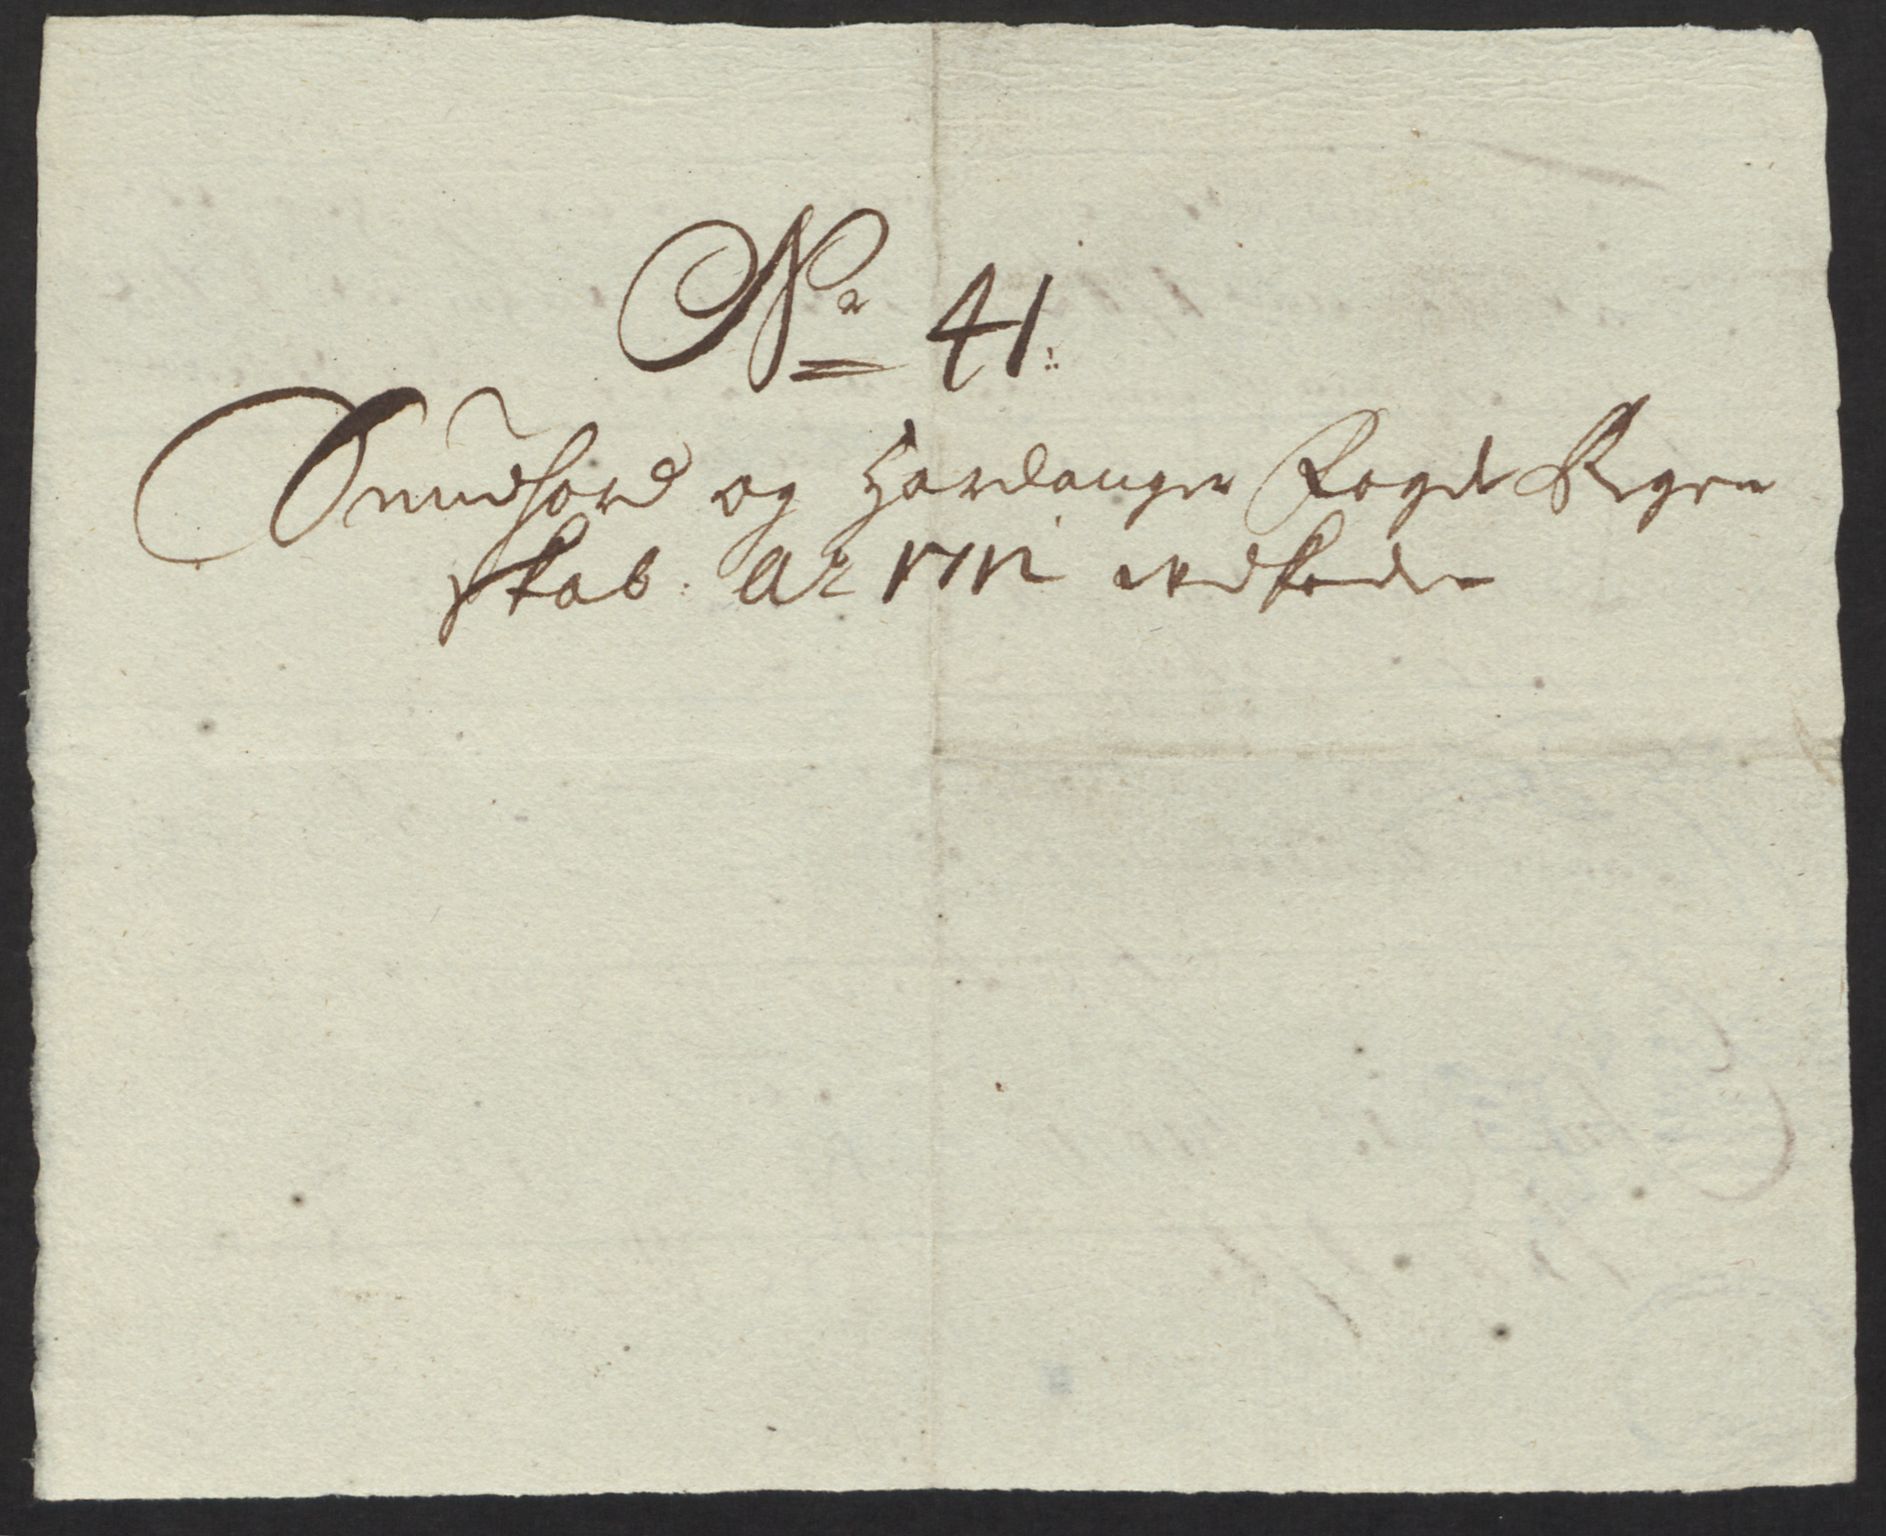 No 41.
Sundhord og Hardanger Fogd Regen
skab. Ao 1712 vedkende